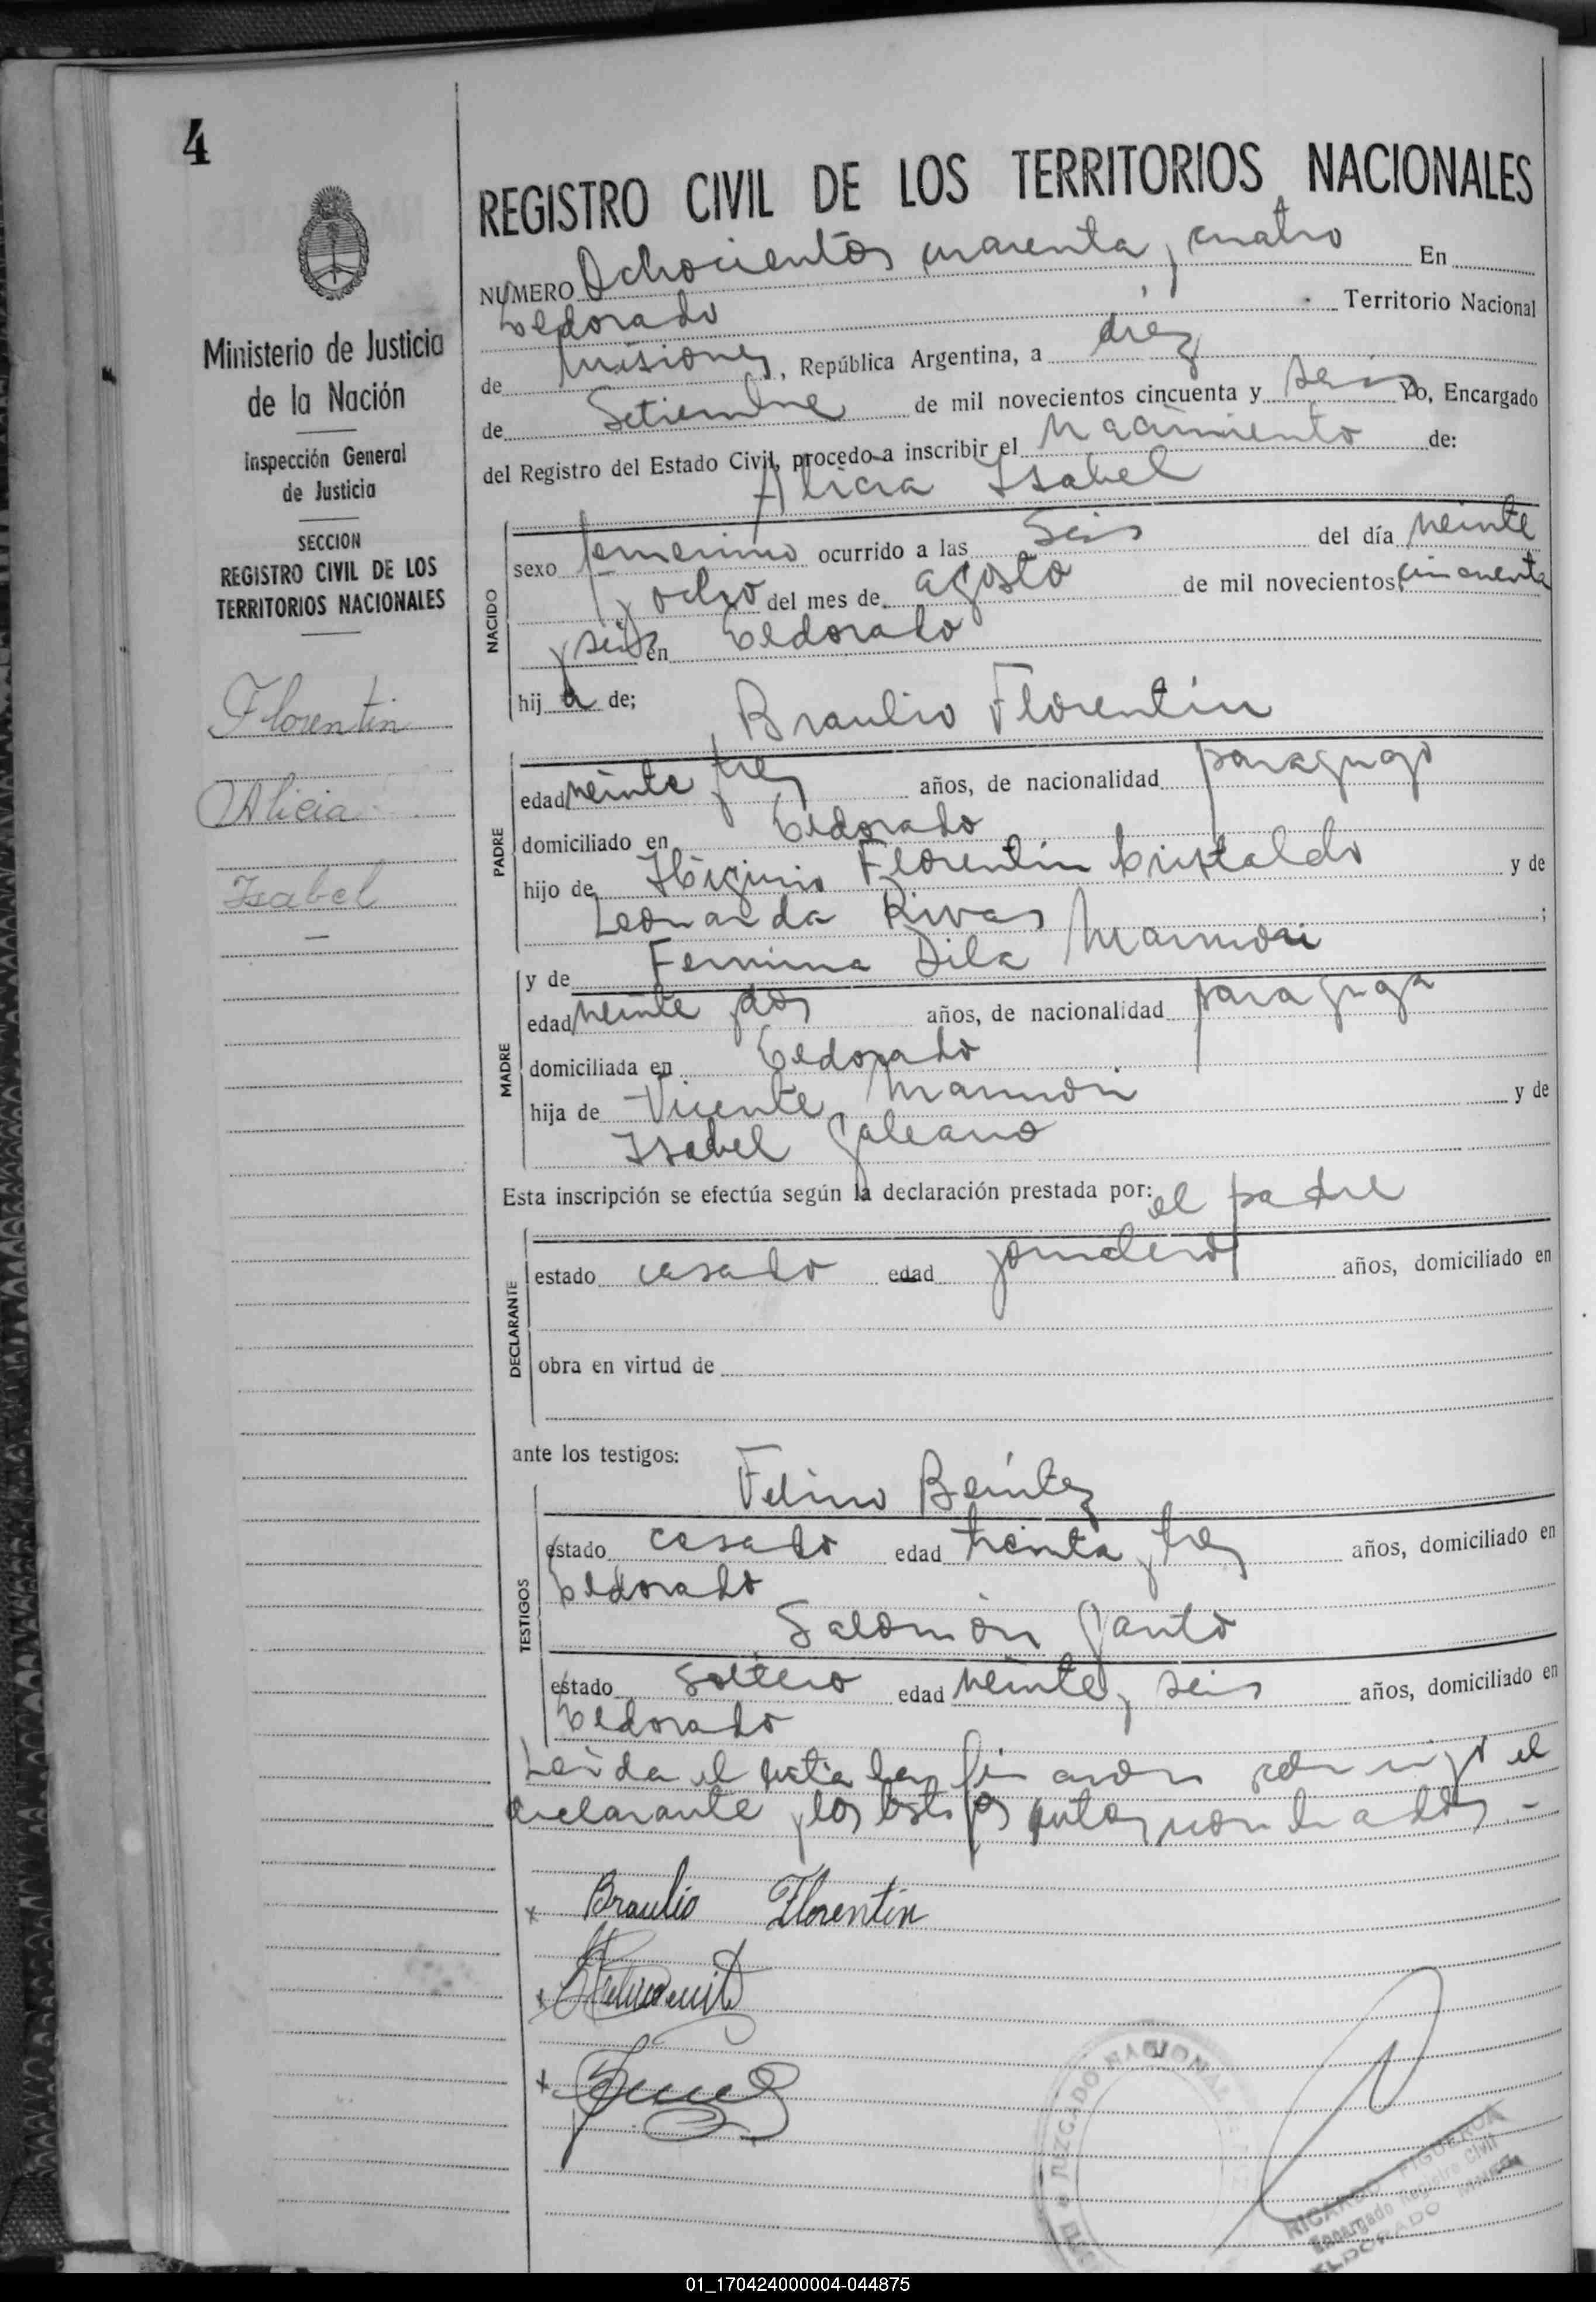 4
REGISTRO CIVIL DE LOS TERRITORIOS NACIONALES
NUMERO Ochocientos cuarenta y cuatro En
Eldorado Territorio Nacional
de Misiones, República Argentina, a diez
de Setiembre de mil novecientos cincuenta y seis Yo, Encargado
del Registro del Estado Civil, procedo a inscribir el Nacimiento de:
Alicia Isabel
Ministerio de Justicia
de la Nación
Inspección General
de Justicia
SECCION
REGISTRO CIVIL DE LOS
TERRITORIOS NACIONALES
Florentin
Alicia
Isabel
NACIDO
sexo femenino ocurrido a las Seis del día veinte
y ocho del mes de agosto de mil novecientos cincuenta
y seis en Eldorado
hij a de; Braulio Florentín
PADRE
edad veinte y tres años, de nacionalidad paraguayo
domiciliado en Eldorado
hijo de Higinio Florentín Cristaldo y de
Leonarda Rivas ;
y de Fermina Dila Marmori
MADRE
edad veinte y dos años, de nacionalidad paraguaya
domiciliada en Eldorado
hija de Vicente Marmori y de
Isabel Galeano
Esta inscripción se efectúa según la declaración prestada por: el padre
DECLARANTE
estado casado edad jornalero años, domiciliado en
obra en virtud de
ante los testigos:
Felino Benítez
TESTIGOS
estado casado edad treinta y tres años, domiciliado en
Eldorado
Salomón Santo
estado soltero edad veinte y seis años, domiciliado en
Eldorado
Leída el acta la firmaron conmigo el
declarante y los testigos antes nombrados -
x Braulio Florentin
x
x
JUZGADO NACIONAL
RICARDO FIGUEROA
Encargado Registro Civil
ELDORADO MNES.
01_170424000004-044875